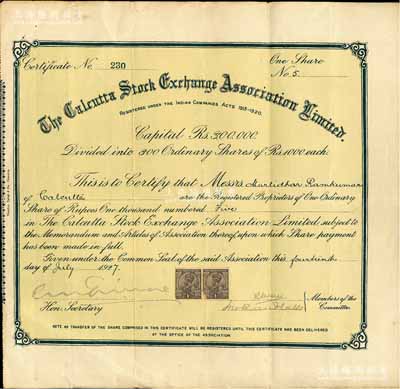 Certificate No. 230
One Share
No. 5
The Calcutta Stock Exchange Association Limited.
REGISTERED UNDER THE INDIAN COMPANIES ACTS 1913-1920.
Capital Rs. 300,000.
Divided into 300 Ordinary Shares of Rs. 1000 each.
This is to Certify that Messrs Murlidhar Ramkumar
of Calcutta are the Registered Proprietors of One Ordinary
Share of Rupees One thousand numbered Five
in The Calcutta Stock Exchange Association Limited subject to
the Memorandum and Articles of Association thereof, upon which Share payment
has been made in full.
Given under the Common Seal of the said Association this fourteenth
day of July 1927.
Hon. Secretary
Members of the
Committee.
NOTE: NO TRANSFER OF THE SHARE COMPRISED IN THIS CERTIFICATE WILL BE REGISTERED UNTIL THIS CERTIFICATE HAS BEEN DELIVERED
AT THE OFFICE OF THE ASSOCIATION.